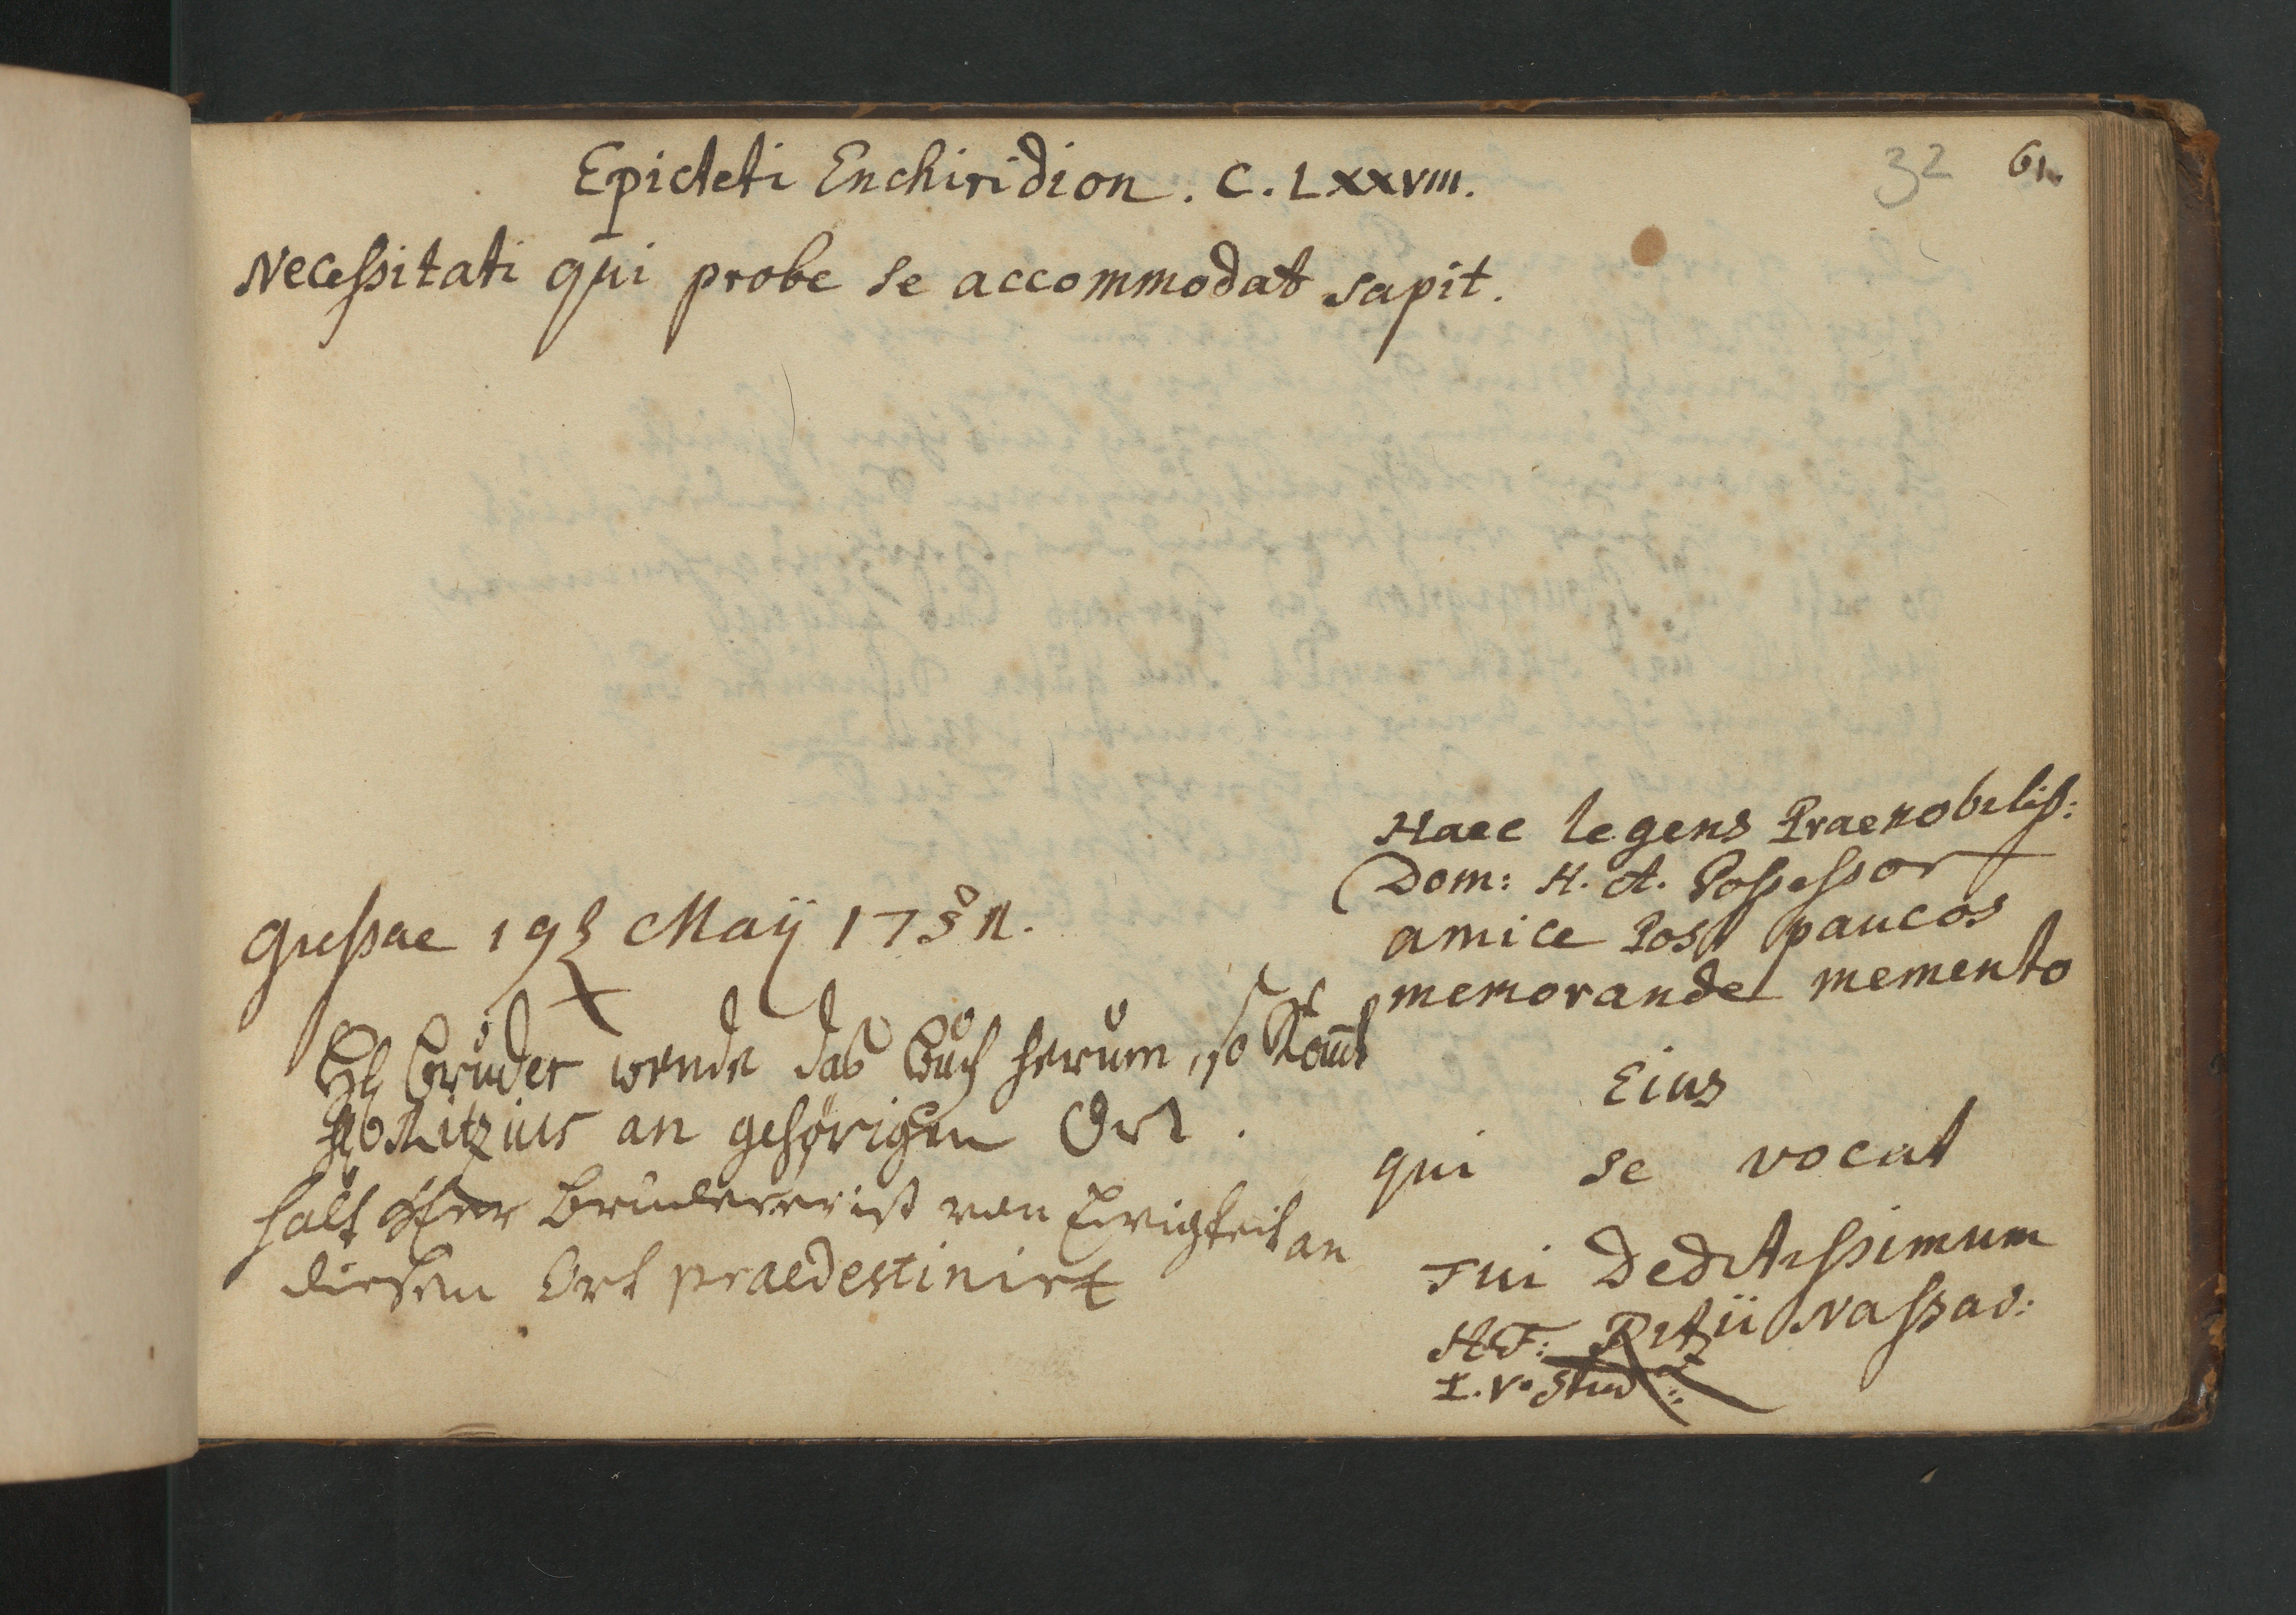 32 61.
Epicteti Enchiridion. C. LXXVIII.
Necessitati qui probe se accommodat sapit.
Haec legens Praenobiliss:
Dom: H. A. Possessor
amice Post paucos
memorandel memento
Eius
qui se vocat
Tui Deditissimum
H.F: Ritzii Nassav:
I. V. Stud:
Giessae May 17
Bruder wende das Buch herum, so kommt
Ritzius an gehörigen Ort.
halt Herr Bruder er ist von Ewigkeit an
diesem Ort praedestinirt